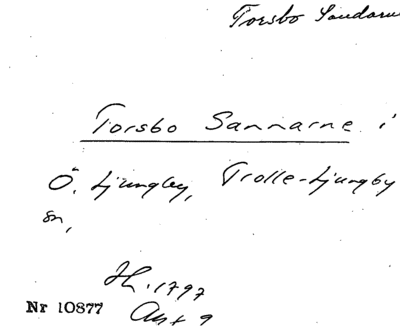 Torsbo Sandarn
Torsbo Sannarne i
Ö. Ljungby, Trolle-Ljungby
sn,
Hl. 1797
Nr 10877
Akt 9